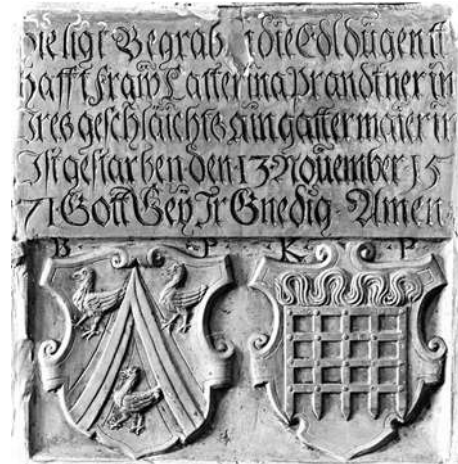 Hie ligt Begrab die Edl dugentt
hafft fraw Catterina Prandtner in
Ires geschlächts ain gattermaier in
Ist gestarben den 13 Nouember 15
71 Gott Sey Ir Gnedig Amen
B P K P